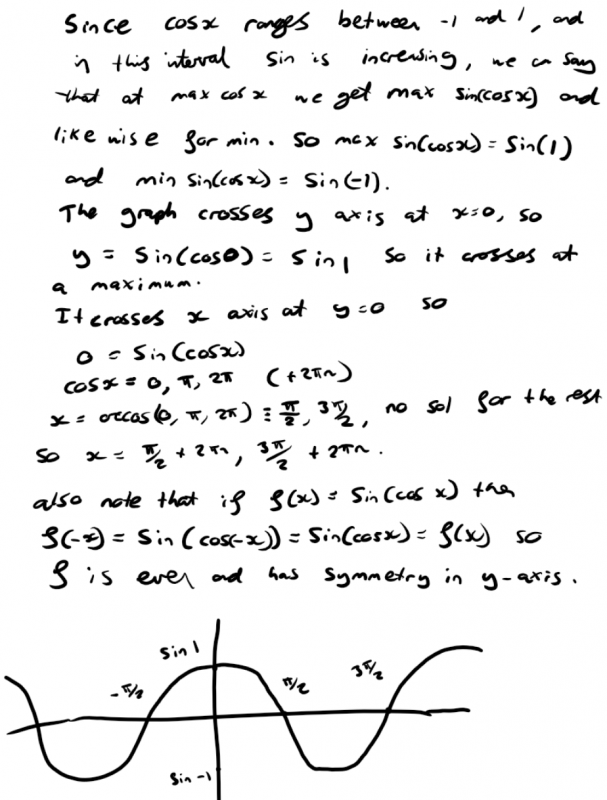 Since cosx ranges between -1 and 1, and
in this interval sin is increasing, we can say
that at max cos x we get max sin(cosx) and
likewise for min. So max sin(cosx) = sin(1)
and min sin(cosx) = sin(-1).
The graph crosses y axis at x=0, so
y = sin(cos0) = sin1 so it crosses at
a maximum.
It crosses x axis at y=0 so
0 = sin(cosx)
cosx = 0, π, 2π (+2πn)
x = arccos(0, π, 2π) ≡ π/2, 3π/2, no sol for the rest
so x = π/2 + 2πn, 3π/2 + 2πn.
also note that if f(x) = sin(cos x) then
f(-x) = sin(cos(-x)) = sin(cosx) = f(x) so
f is even and has symmetry in y-axis.
sin 1
-π/2
π/2
3π/2
sin -1